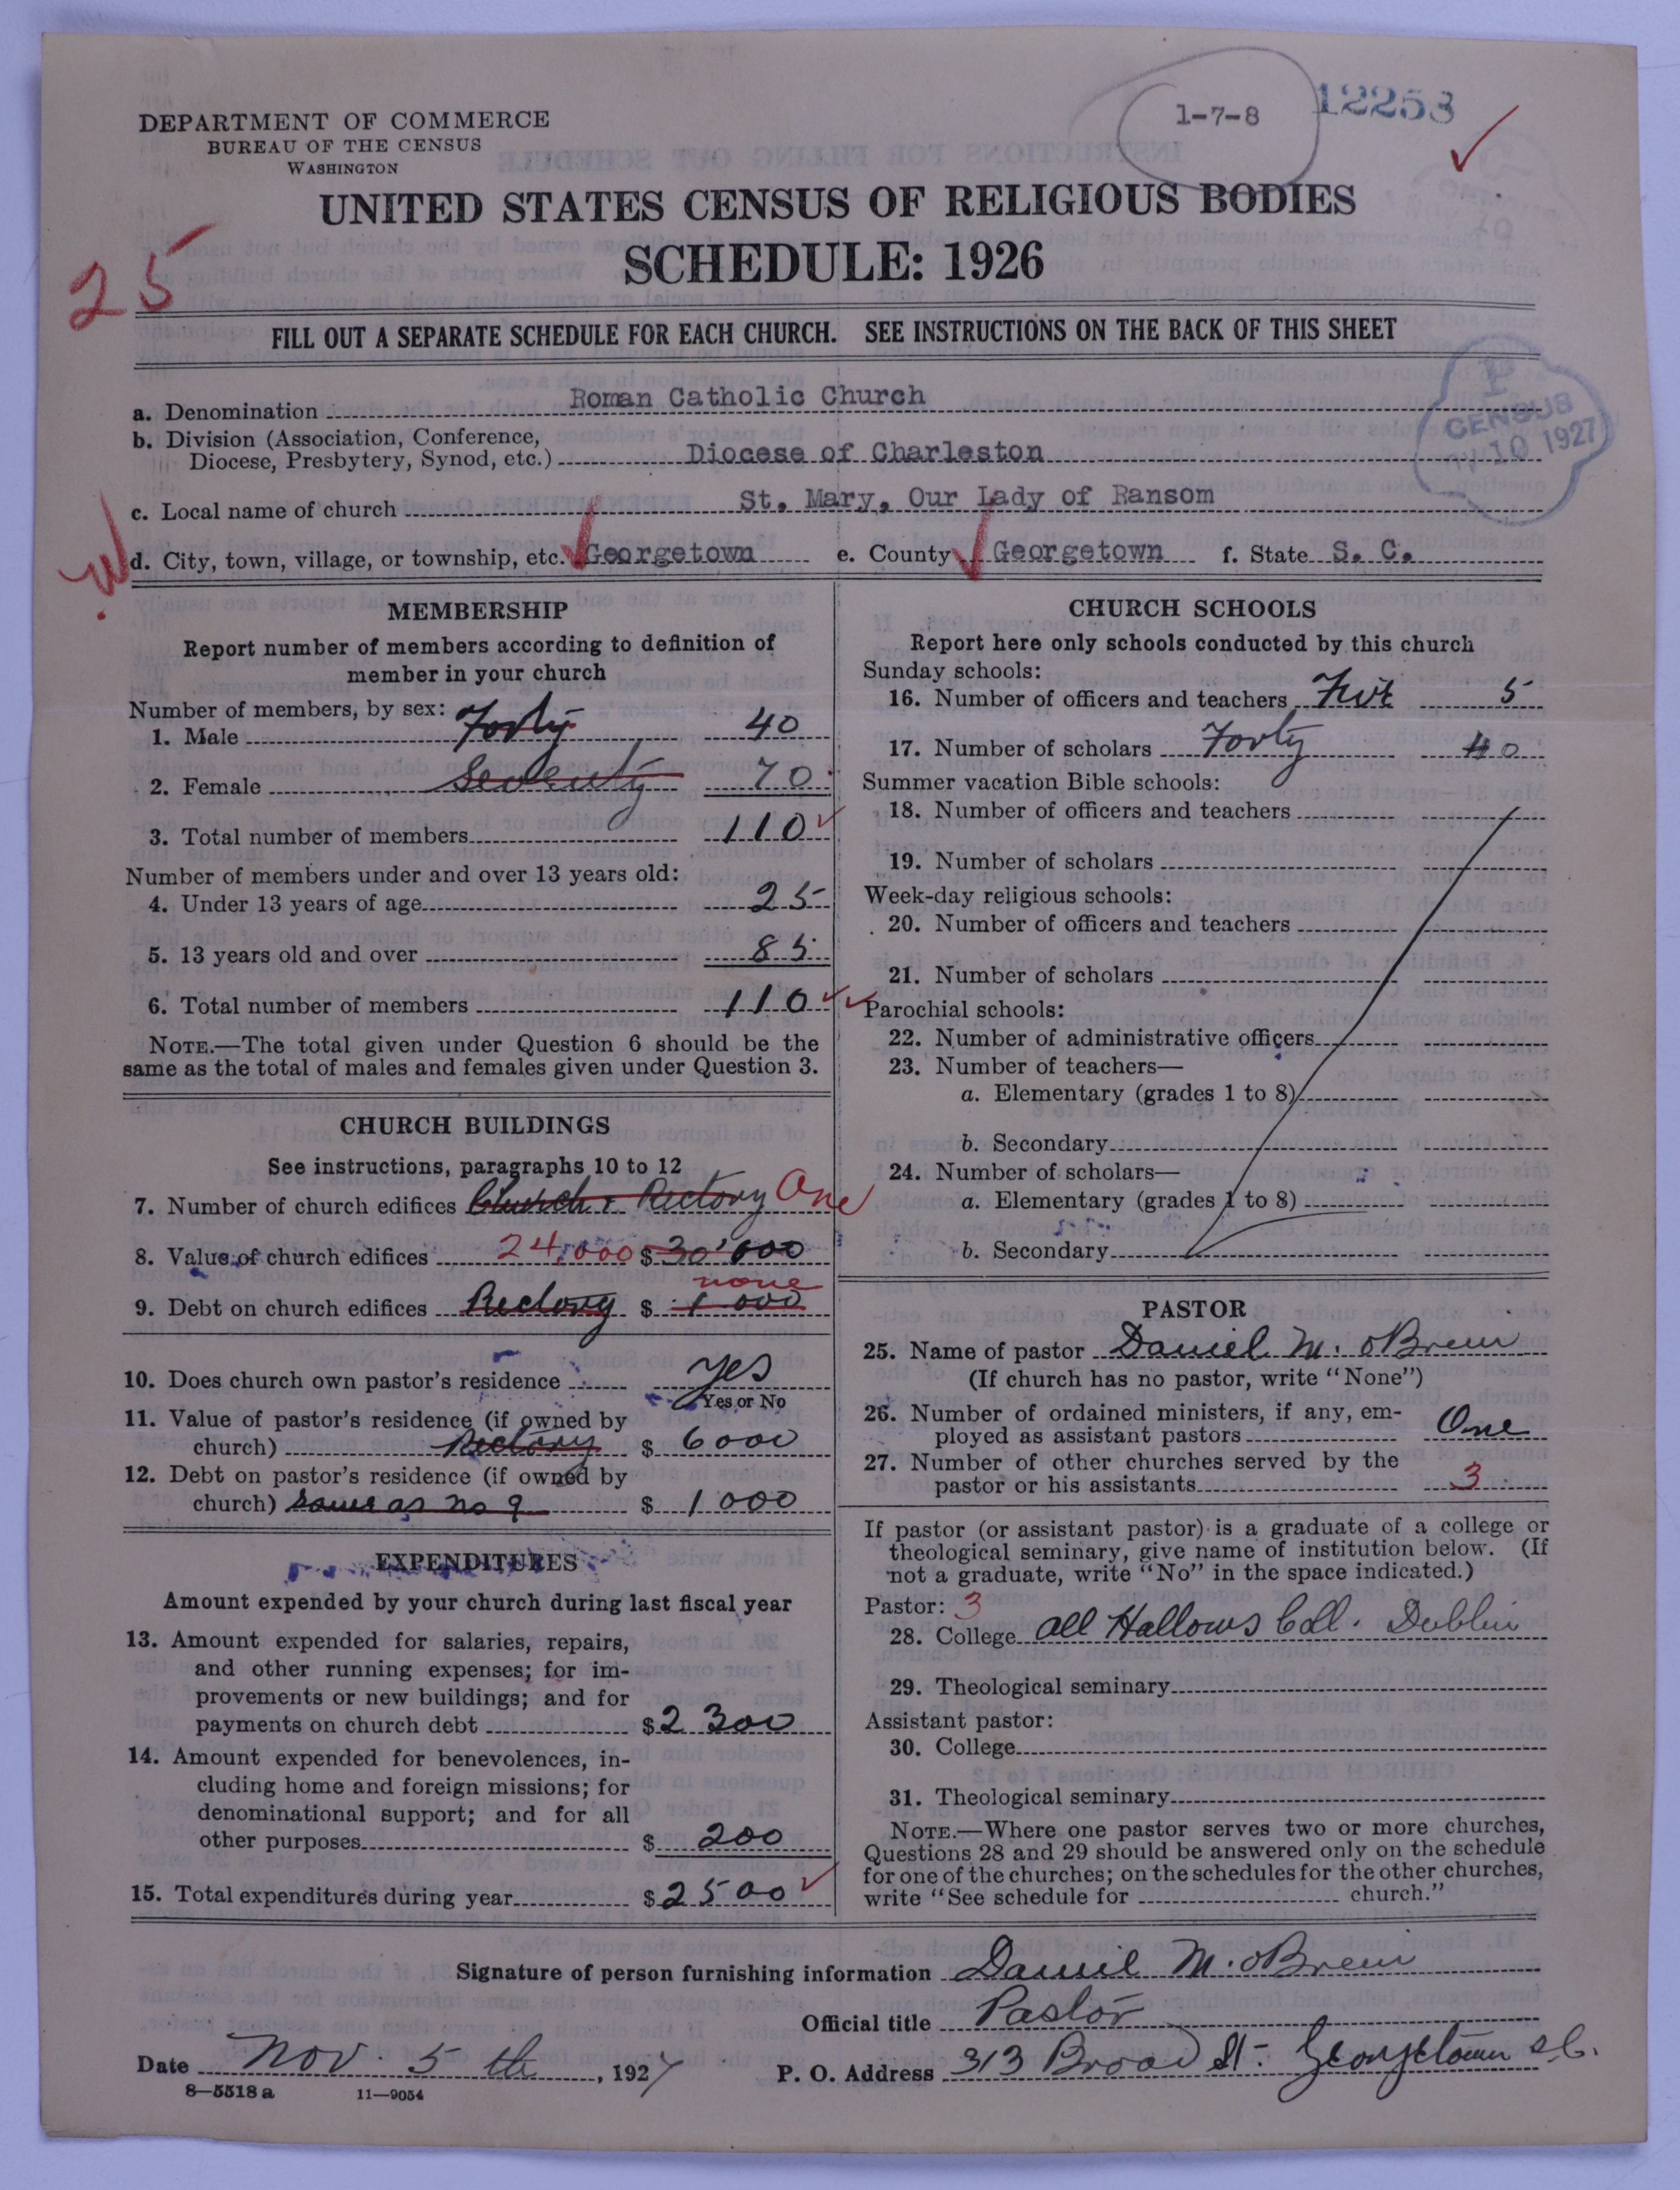 1-7-8
12253
DEPARTMENT OF COMMERCE
BUREAU OF THE CENSUS
WASHINGTON
UNITED STATES CENSUS OF RELIGIOUS BODIES
SCHEDULE: 1926
25
FILL OUT A SEPARATE SCHEDULE FOR EACH CHURCH. SEE INSTRUCTIONS ON THE BACK OF THIS SHEET
CENSUS
10 1927
a. Denomination Roman Catholic Church
b. Division (Association, Conference,
Diocese, Presbytery, Synod, etc.) Diocese of Charleston
c. Local name of church St. Mary, Our Lady of Ransom
d. City, town, village, or township, etc. Georgetown e. County Georgetown f. State S. C.
MEMBERSHIP
Report number of members according to definition of
member in your church
Number of members, by sex:
1. Male Forty 40
2. Female Seventy 70
3. Total number of members 110
Number of members under and over 13 years old:
4. Under 13 years of age 25
5. 13 years old and over 85
6. Total number of members 110
NOTE.—The total given under Question 6 should be the
same as the total of males and females given under Question 3.
CHURCH BUILDINGS
See instructions, paragraphs 10 to 12
7. Number of church edifices Church & Rectory One
8. Value of church edifices 24,000 $ 30'000
none
9. Debt on church edifices Rectory $ 1 000
10. Does church own pastor's residence Yes
Yes or No
11. Value of pastor's residence (if owned by
church) Rectory $ 6000
12. Debt on pastor's residence (if owned by
church) Same as no 9 $ 1 000
EXPENDITURES
Amount expended by your church during last fiscal year
13. Amount expended for salaries, repairs,
and other running expenses; for im-
provements or new buildings; and for
payments on church debt $ 2 300
14. Amount expended for benevolences, in-
cluding home and foreign missions; for
denominational support; and for all
other purposes $ 200
15. Total expenditures during year $ 2500
CHURCH SCHOOLS
Report here only schools conducted by this church
Sunday schools:
16. Number of officers and teachers Five 5
17. Number of scholars Forty 40
Summer vacation Bible schools:
18. Number of officers and teachers
19. Number of scholars
Week-day religious schools:
20. Number of officers and teachers
21. Number of scholars
Parochial schools:
22. Number of administrative officers
23. Number of teachers—
a. Elementary (grades 1 to 8)
b. Secondary
24. Number of scholars—
a. Elementary (grades 1 to 8)
b. Secondary
PASTOR
25. Name of pastor Daniel M. O'Brien
(If church has no pastor, write "None")
26. Number of ordained ministers, if any, em-
ployed as assistant pastors One
27. Number of other churches served by the
pastor or his assistants 3
If pastor (or assistant pastor) is a graduate of a college or
theological seminary, give name of institution below. (If
not a graduate, write "No" in the space indicated.)
Pastor: 3
28. College All Hallows Coll. Dublin
29. Theological seminary
Assistant pastor:
30. College
31. Theological seminary
NOTE.—Where one pastor serves two or more churches,
Questions 28 and 29 should be answered only on the schedule
for one of the churches; on the schedules for the other churches,
write "See schedule for church."
Signature of person furnishing information Daniel M. O'Brien
Official title Pastor
Date Nov. 5 th, 1927 P. O. Address 313 Broad St. Georgetown S.C.
8—5518 a 11—9054